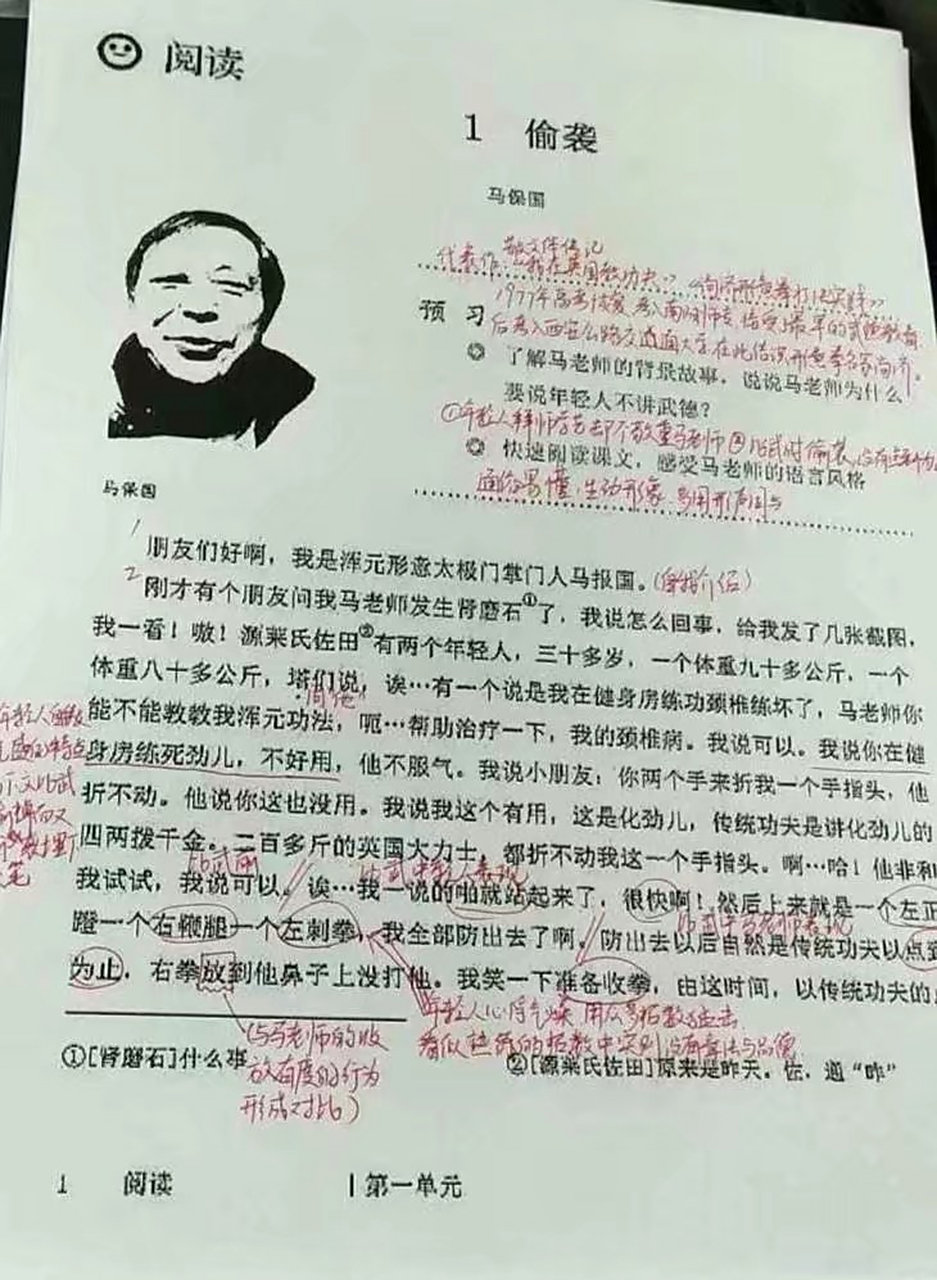 阅读
1 偷袭
马保国
散文体传记
代表作《我在英国教功夫》《
1977年高考恢复
预 习
了解马老师的背景故事，说说马老师为什么
要说年轻人不讲武德？
快速阅读课文，感受马老师的语言风格
通俗易懂，生动形象，多用形声词
马保国
1 朋友们好啊，我是浑元形意太极门掌门人马报国。(自我介绍)
2 刚才有个朋友问我马老师发生肾磨石①了，我说怎么回事，给我发了几张截图，
我一看！嗷！源莱氏佐田②有两个年轻人，三十多岁，一个体重九十多公斤，一个
体重八十多公斤，塔们说，诶…有一个说是我在健身房练功颈椎练坏了，马老师你
同他
能不能教教我浑元功法，呃…帮助治疗一下，我的颈椎病。我说可以。我说你在健
身房练死劲儿，不好用，他不服气。我说小朋友：你两个手来折我一个手指头，他
折不动。他说你这也没用。我说我这个有用，这是化劲儿，传统功夫是讲化劲儿的
四两拨千金。二百多斤的英国大力士，都折不动我这一个手指头。啊…哈！他非和
比武前
我试试，我说可以。诶…我一说的啪就站起来了，很快啊！然后上来就是一个左正
蹬一个右鞭腿一个左刺拳，我全部防出去了啊。防出去以后自然是传统功夫以点到
为止，右拳放到他鼻子上没打他。我笑一下准备收拳，由这时间，以传统功夫的
年轻人心浮气燥 用众多招数
(与马老师的收
放有度的行为
形成对比)
①[肾磨石]什么事
②[源莱氏佐田]原来是昨天。佐，通“昨”
1 阅读 第一单元